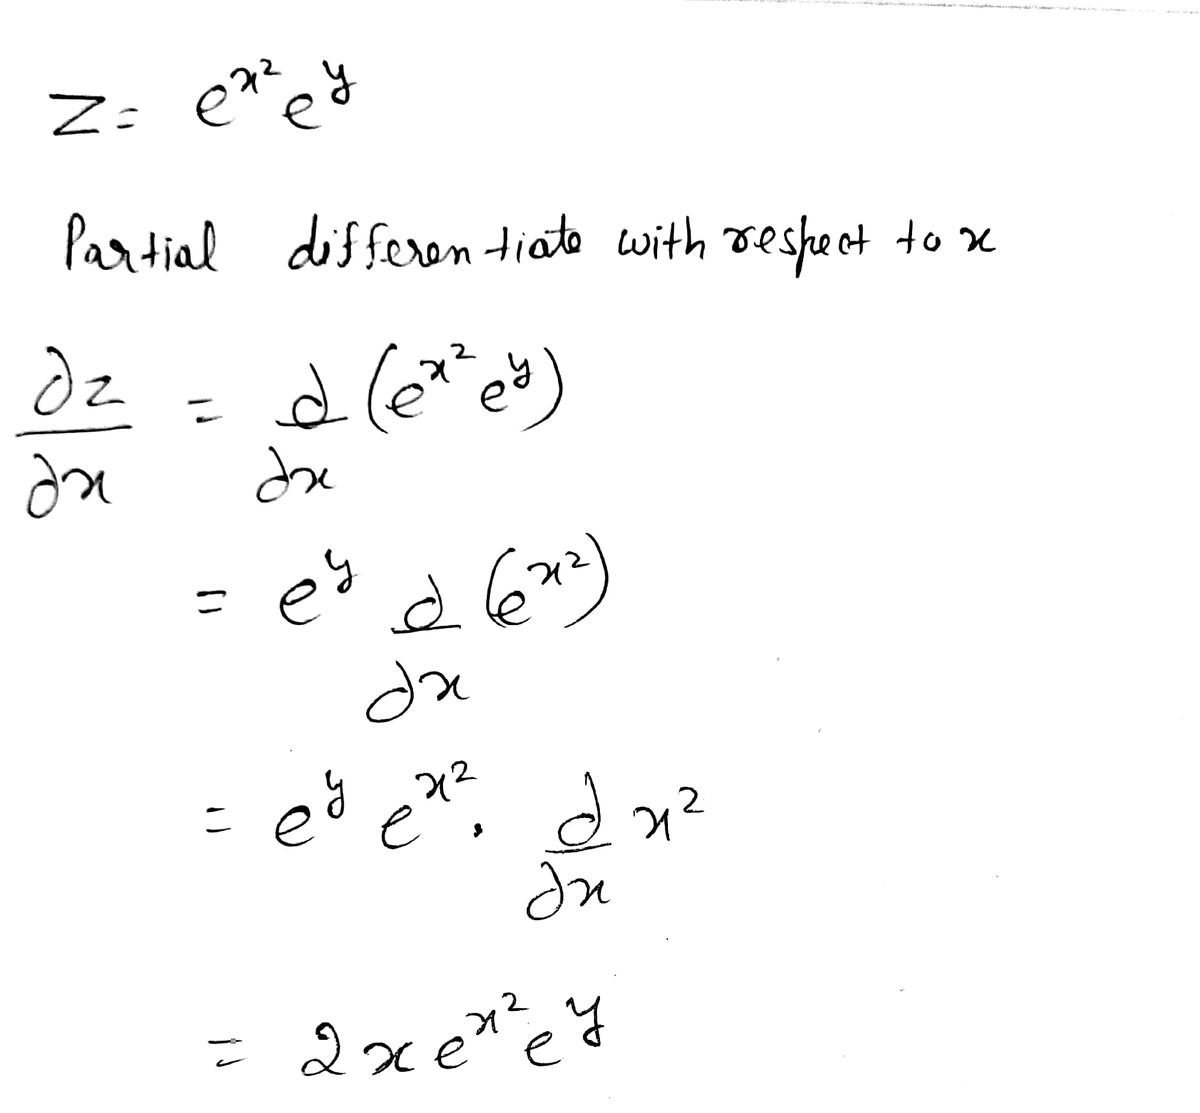 z = e^{x^2} e^y
Partial differentiate with respect to x
∂z/∂x = d/dx (e^{x^2} e^y)
= e^y d/dx (e^{x^2})
= e^y e^{x^2} . d/dx x^2
= 2x e^{x^2} e^y